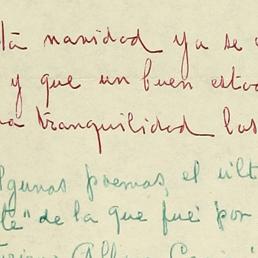 está navidad ya se
y que un buen estad
na tranquilidad las
lgunas poemas, el últ
te" de la que fué por